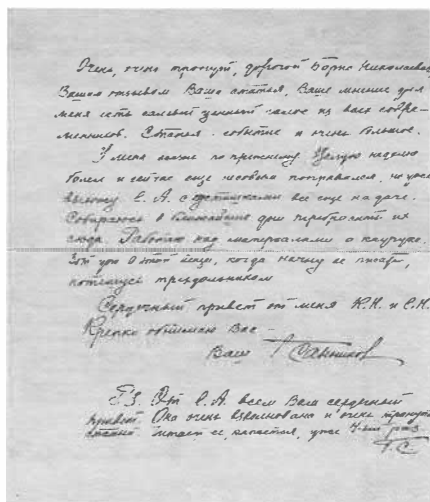 Очень, очень тронут, дорогой Борис Николаевич
Вашим отзывом. Ваша статья, Ваше мнение для
меня есть самый ценный из всех совре-
менников. Статья - событие и очень большое.
У меня по прежнему. Целую неделю
болел и сейчас еще не совсем поправился, но уже
выхожу. Е. А. с детишками все еще на даче.
Собираюсь в ближайшие дни перебросить их
сюда. Работаю над материалами о
этой вещи, когда начну ее писать,
Сердечный привет от меня К.Н. и Е.Н.
Крепко обнимаю Вас -
Ваш
P.S. От Е. А. всем Вам сердечный
привет. Она очень взволнована и очень тронута
читает ее, кажется, уже раз
Г.С.